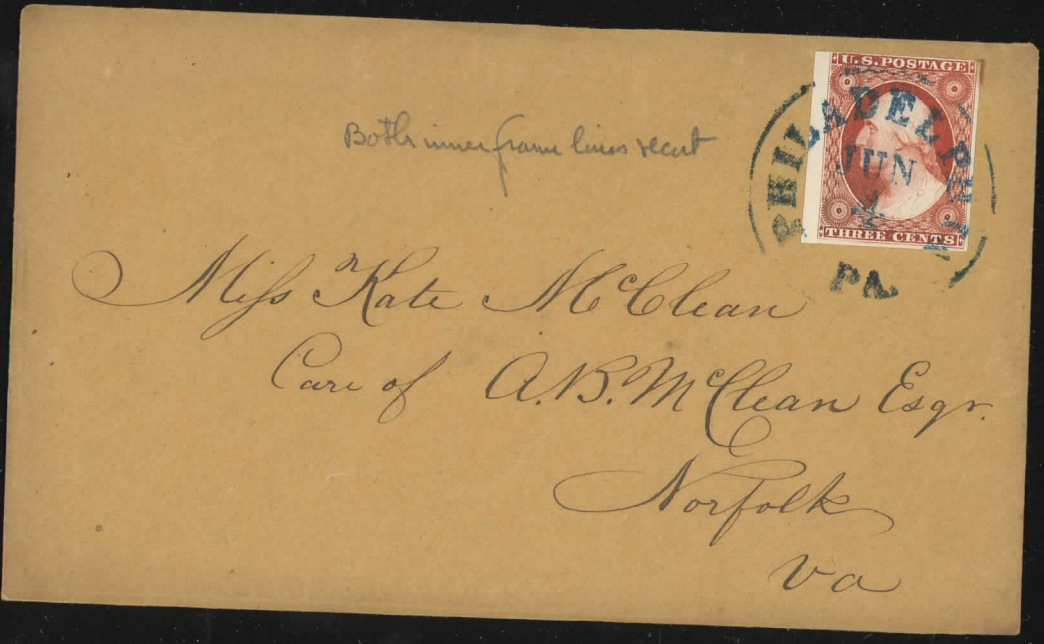 U.S. POSTAGE
THREE CENTS
PHILADELPHIA
JUN
4
PA.
Both inner frame lines recut
Miss Kate McClean
Care of A.B. McClean Esqr.
Norfolk
Va